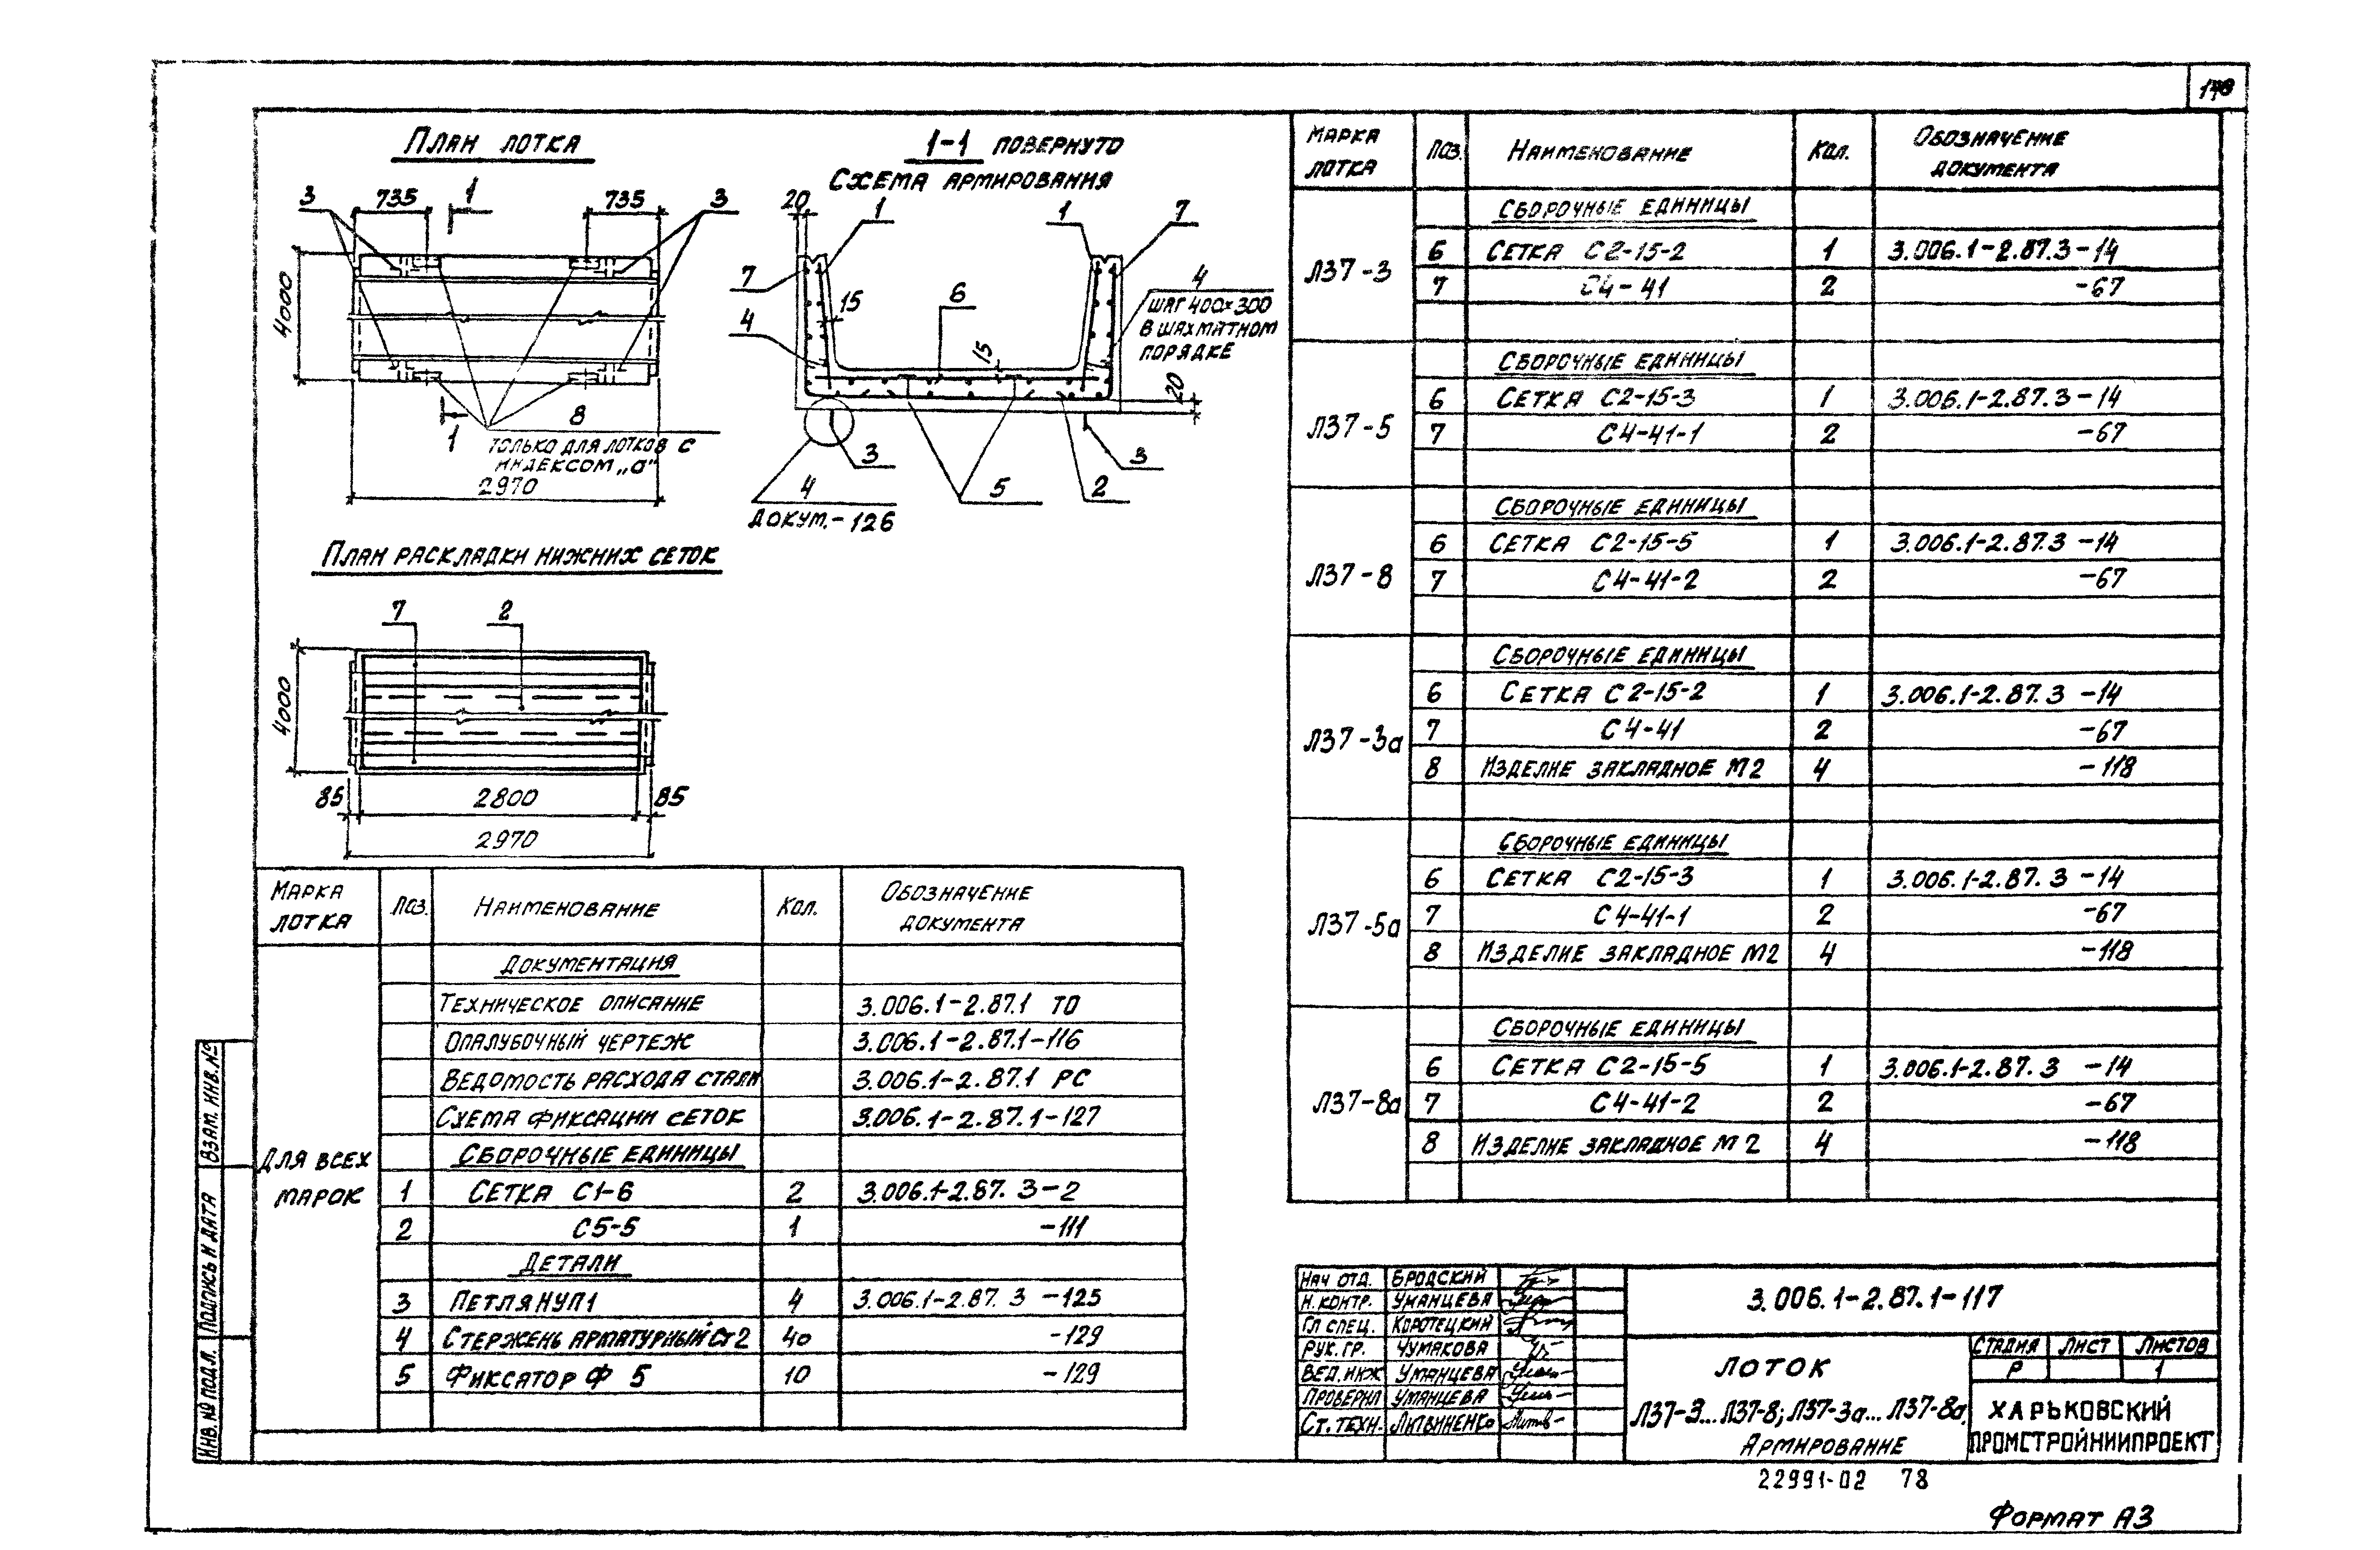 План лотка
3
735
1
735
3
4000
8
только для лотков с
индексом „а"
1
2970
1-1 повернуто
Схема армирования
20
1
1
7
7
4
шаг 400х300
в шахматном
порядке
15
6
4
15
20
3
3
4
5
2
докум.-126
План раскладки нижних сеток
7
2
4000
85
2800
85
2970
Марка лотка
Поз.
Наименование
Кол.
Обозначение документа
Для всех марок
Документация
Техническое описание 3.006.1-2.87.1 ТО
Опалубочный чертеж 3.006.1-2.87.1-116
Ведомость расхода стали 3.006.1-2.87.1 РС
Схема фиксации сеток 3.006.1-2.87.1-127
Сборочные единицы
1 Сетка С1-6 2 3.006.1-2.87.3-2
2 С5-5 1 -111
Детали
3 Петля НУП1 4 3.006.1-2.87.3 -125
4 Стержень арматурный Ст2 40 -129
5 Фиксатор Ф 5 10 -129
Марка лотка
Поз.
Наименование
Кол.
Обозначение документа
Л37-3
Сборочные единицы
6 Сетка С2-15-2 1 3.006.1-2.87.3-14
7 С4-41 2 -67
Л37-5
Сборочные единицы
6 Сетка С2-15-3 1 3.006.1-2.87.3-14
7 С4-41-1 2 -67
Л37-8
Сборочные единицы
6 Сетка С2-15-5 1 3.006.1-2.87.3-14
7 С4-41-2 2 -67
Л37-3а
Сборочные единицы
6 Сетка С2-15-2 1 3.006.1-2.87.3-14
7 С4-41 2 -67
8 Изделие закладное М2 4 -118
Л37-5а
Сборочные единицы
6 Сетка С2-15-3 1 3.006.1-2.87.3-14
7 С4-41-1 2 -67
8 Изделие закладное М2 4 -118
Л37-8а
Сборочные единицы
6 Сетка С2-15-5 1 3.006.1-2.87.3 -14
7 С4-41-2 2 -67
8 Изделие закладное М2 4 -118
Нач отд. Бродский
Н.контр. Уманцева
Гл спец. Коротецкий
Рук. гр. Чумакова
Вед.инж Уманцева
Проверил Уманцева
Ст.техн. Литвиненко
3.006.1-2.87.1-117
Лоток
Л37-3...Л37-8; Л37-3а...Л37-8а.
Армирование
Стадия Лист Листов
Р 1
Харьковский
Промстройниипроект
22991-02 78
Формат А3
Взам. инв.№
Подпись и дата
Инв.№ подл.